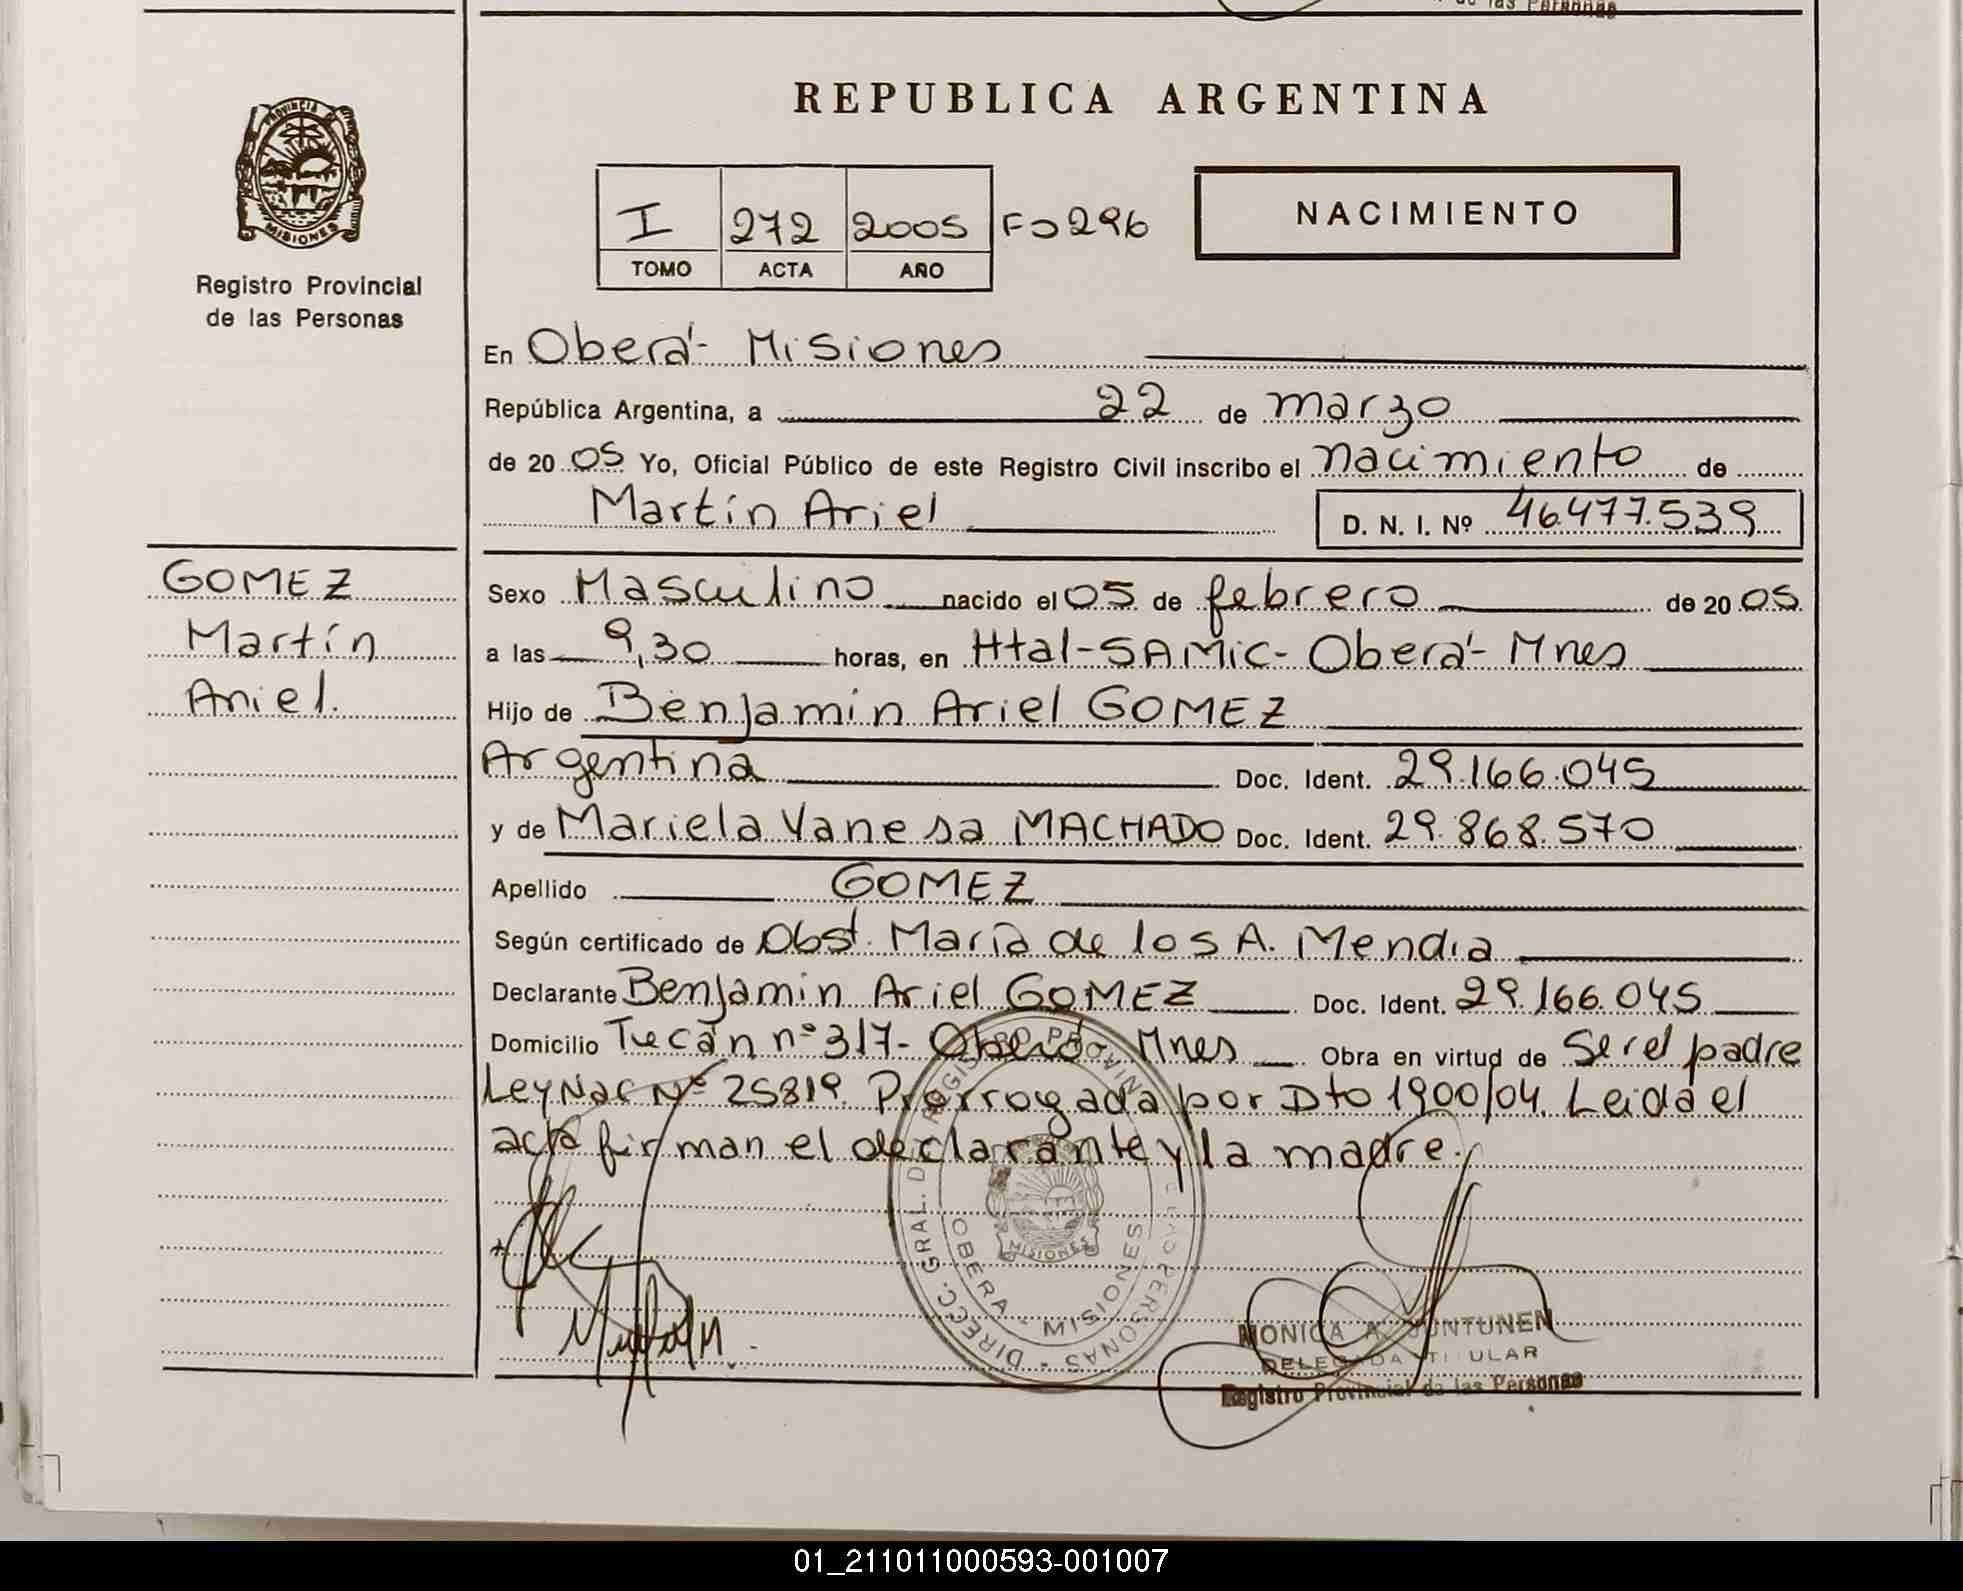 de las Personas
REPUBLICA ARGENTINA
PROVINCIA DE
MISIONES
Registro Provincial
de las Personas
I 272 2005 Fo 296
TOMO ACTA AÑO
NACIMIENTO
En Oberá - Misiones
República Argentina, a 22 de marzo
de 20 05 Yo, Oficial Público de este Registro Civil inscribo el nacimiento de
Martín Ariel D. N. I. Nº 46.477.539
GOMEZ
Martín
Ariel.
Sexo Masculino nacido el 05 de febrero de 20 05
a las 9,30 horas, en Htal-SAMIC- Oberá- Mnes
Hijo de Benjamín Ariel GOMEZ
Argentina Doc. Ident. 29.166.045
y de Mariela Vanesa MACHADO Doc. Ident. 29.868.570
Apellido GOMEZ
Según certificado de Obst. María de los A. Mendia
Declarante Benjamin Ariel GOMEZ Doc. Ident. 29.166.045
Domicilio Tucán nº 317- Oberá- Mnes Obra en virtud de Ser el padre
Ley Nac Nº 25819. Prorrogada por Dto 1900/04. Leida el
acta firman el declarante y la madre.
DIRECC. GRAL. DEL REGISTRO PROVINCIAL DE LAS PERSONAS
OBERA - MISIONES
MISIONES
MONICA A. JUNTUNEN
DELEGADA TITULAR
Registro Provincial de las Personas
01_211011000593-001007